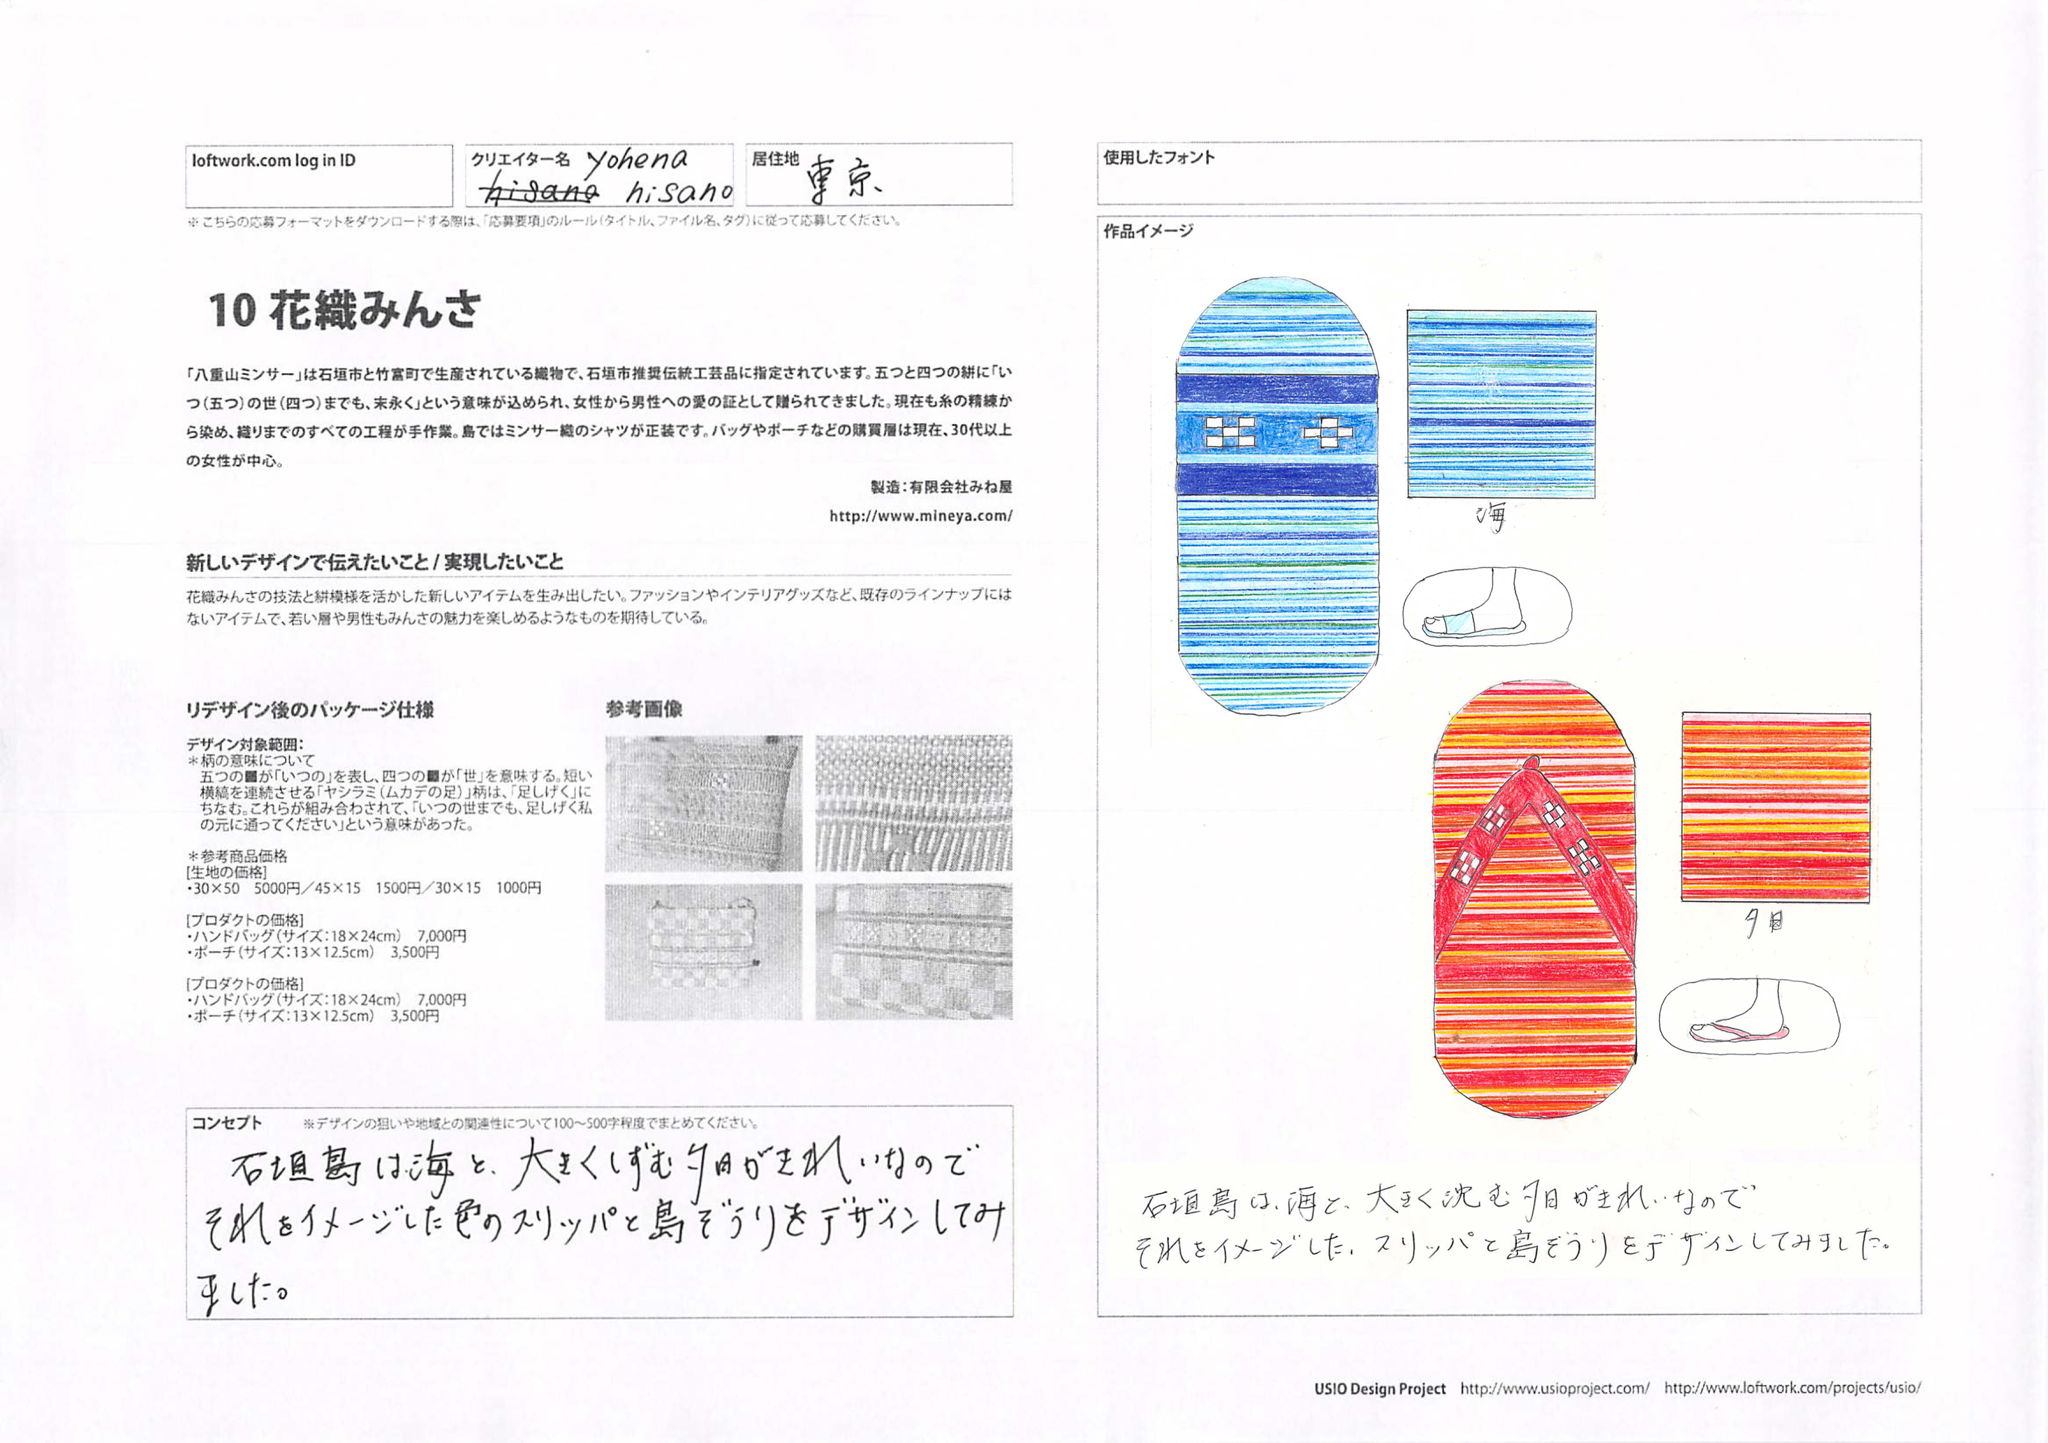 loftwork.com log in ID
クリエイター名 yohena
hisano hisano
居住地
東京
※こちらの応募フォーマットをダウンロードする際は、「応募要項」のルール（タイトル、ファイル名、タグ）に従って応募してください。
10 花織みんさ
「八重山ミンサー」は石垣市と竹富町で生産されている織物で、石垣市推奨伝統工芸品に指定されています。五つと四つの絣に「い
つ（五つ）の世（四つ）までも、末永く」という意味が込められ、女性から男性への愛の証として贈られてきました。現在も糸の精練か
ら染め、織りまでのすべての工程が手作業。島ではミンサー織のシャツが正装です。バッグやポーチなどの購買層は現在、30代以上
の女性が中心。
製造：有限会社みね屋
http://www.mineya.com/
新しいデザインで伝えたいこと / 実現したいこと
花織みんさの技法と絣模様を活かした新しいアイテムを生み出したい。ファッションやインテリアグッズなど、既存のラインナップには
ないアイテムで、若い層や男性もみんさの魅力を楽しめるようなものを期待している。
リデザイン後のパッケージ仕様
デザイン対象範囲：
＊柄の意味について
五つの■が「いつの」を表し、四つの■が「世」を意味する。短い
横縞を連続させる「ヤシラミ（ムカデの足）」柄は、「足しげく」に
ちなむ。これらが組み合わされて、「いつの世までも、足しげく私
の元に通ってください」という意味があった。
＊参考商品価格
[生地の価格]
・30×50 5000円／45×15 1500円／30×15 1000円
[プロダクトの価格]
・ハンドバッグ（サイズ：18×24cm） 7,000円
・ポーチ（サイズ：13×12.5cm） 3,500円
[プロダクトの価格]
・ハンドバッグ（サイズ：18×24cm） 7,000円
・ポーチ（サイズ：13×12.5cm） 3,500円
参考画像
コンセプト ※デザインの狙いや地域との関連性について100〜500字程度でまとめてください。
石垣島は海と、大きくしずむ夕日がきれいなので
それをイメージした色のスリッパと島ぞうりをデザインしてみ
ました。
使用したフォント
作品イメージ
海
夕日
石垣島は、海と、大きく沈む夕日がきれいなので
それをイメージした、スリッパと島ぞうりをデザインしてみました。
USIO Design Project http://www.usioproject.com/ http://www.loftwork.com/projects/usio/